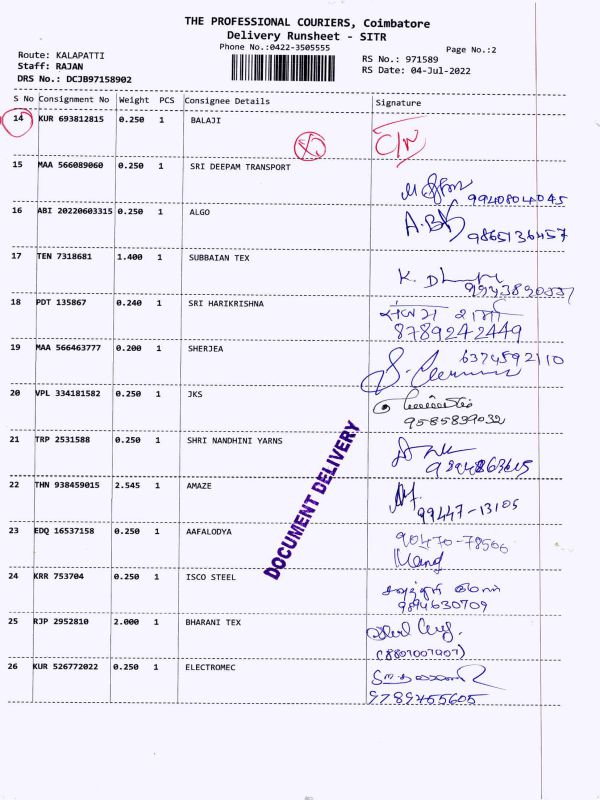 THE PROFESSIONAL COURIERS, Coimbatore
Delivery Runsheet - SITR
Phone No.:0422-3505555
Page No.:2
Route: KALAPATTI
Staff: RAJAN
DRS No.: DCJB97158902
RS No.: 971589
RS Date: 04-Jul-2022
S No Consignment No Weight PCS Consignee Details Signature
14 KUR 693812815 0.250 1 BALAJI
15 MAA 566089060 0.250 1 SRI DEEPAM TRANSPORT
9940804045
16 ABI 20220603315 0.250 1 ALGO
9865136457
17 TEN 7318681 1.400 1 SUBBAIAN TEX
18 PDT 135867 0.240 1 SRI HARIKRISHNA
8789242449
19 MAA 566463777 0.200 1 SHERJEA
6374592110
20 VPL 334181582 0.250 1 JKS
9585839032
21 TRP 2531588 0.250 1 SHRI NANDHINI YARNS
22 THN 938459015 2.545 1 AMAZE
99447-13105
23 EDQ 16537158 0.250 1 AAFALODYA
90470-78506
24 KRR 753704 0.250 1 ISCO STEEL
9894630709
25 RJP 2952810 2.000 1 BHARANI TEX
26 KUR 526772022 0.250 1 ELECTROMEC
9789455605
DOCUMENT DELIVERY